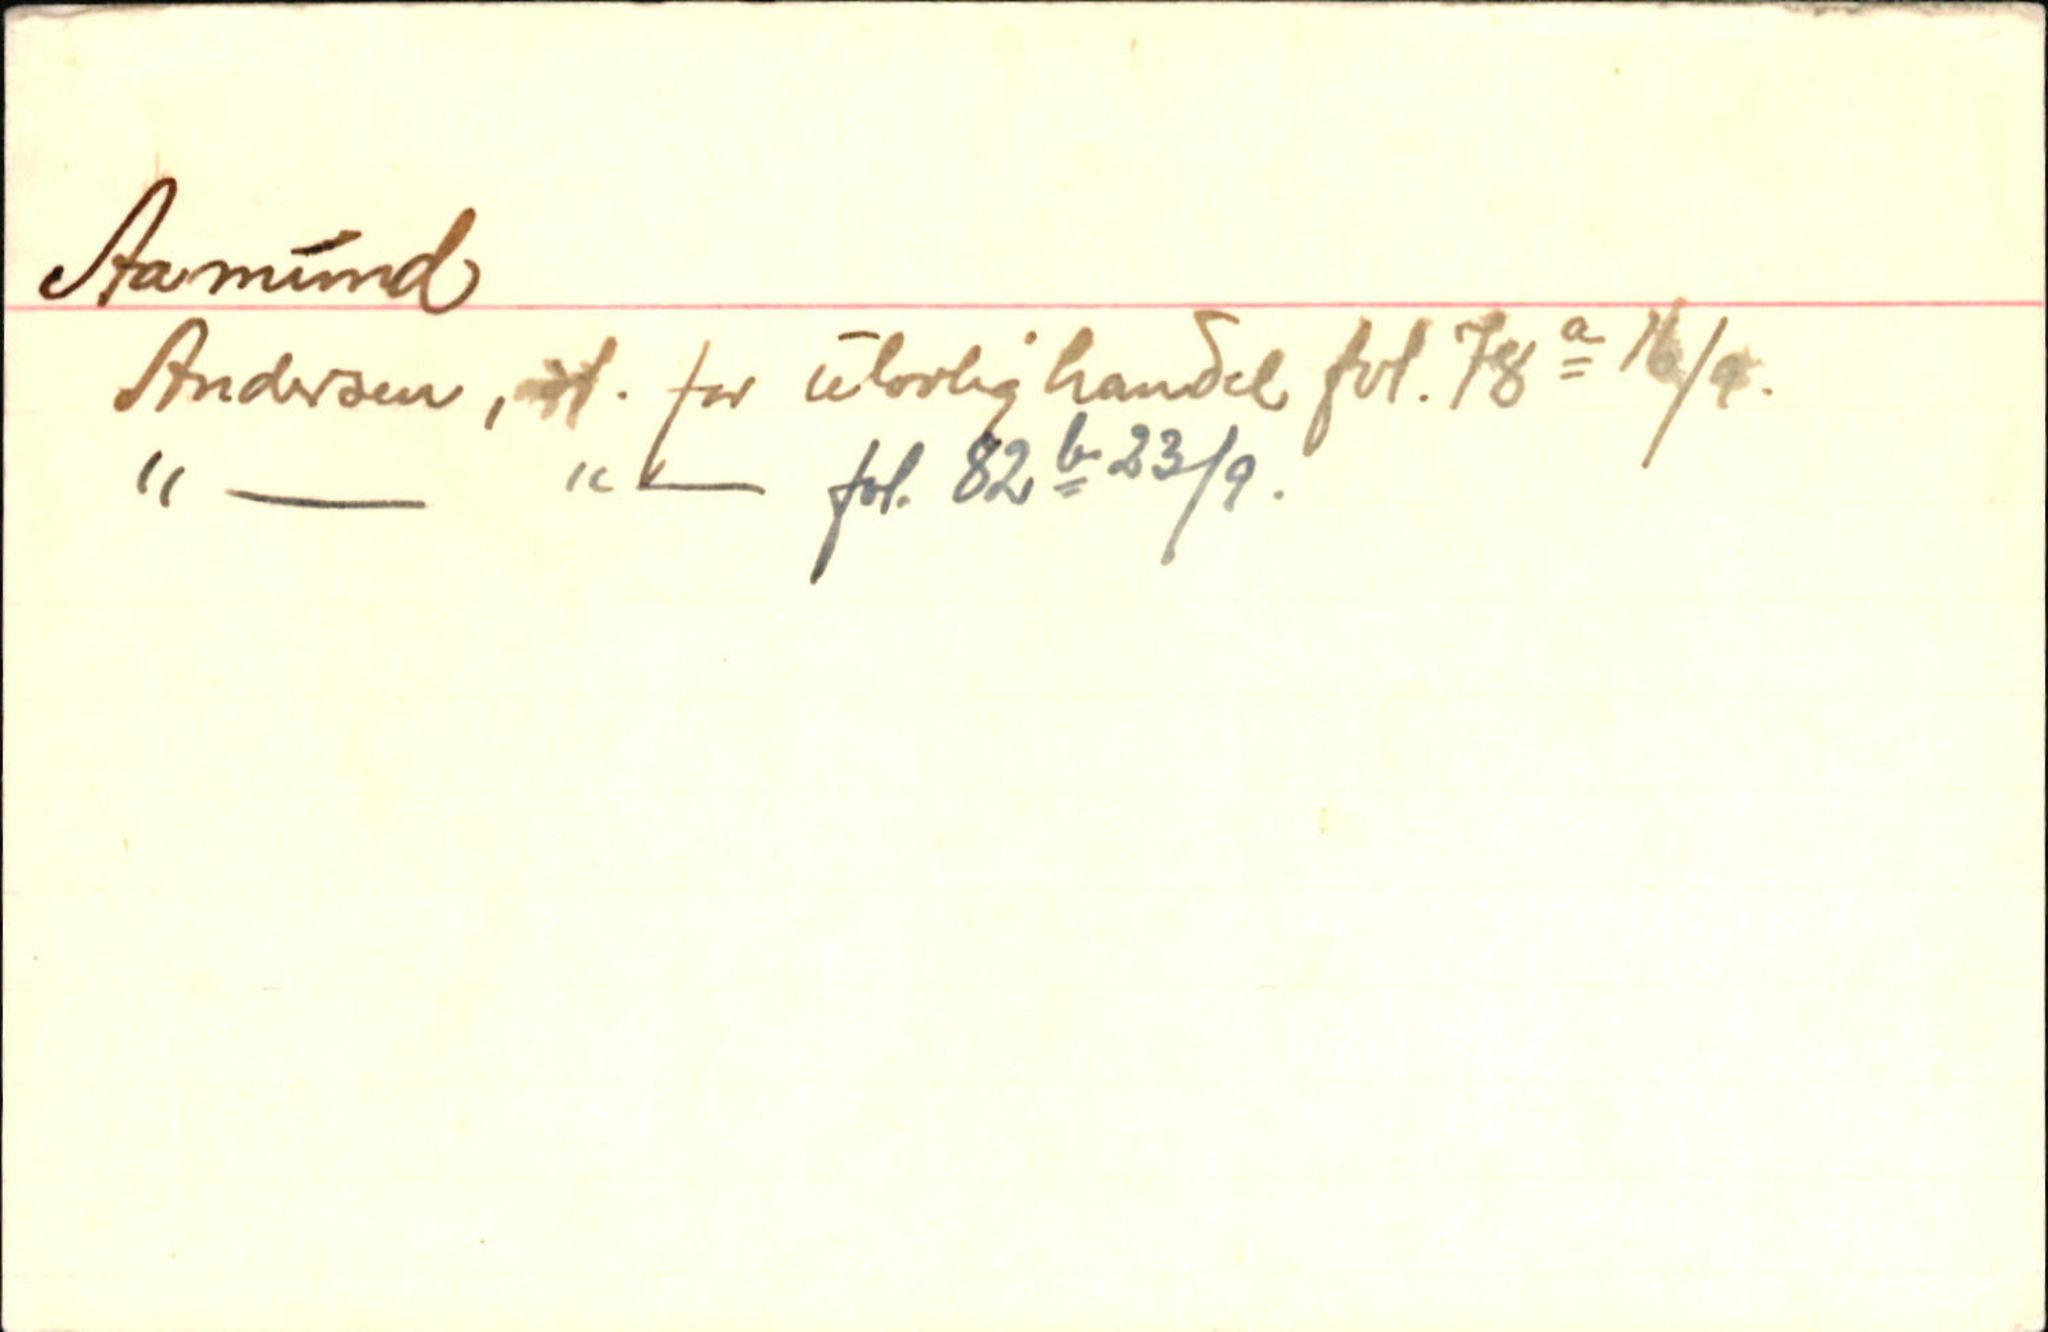 Aamund
Andersen, st. for ulovlig handel fol. 78 a 16/9.
" — " — fol. 82 b 23/9.